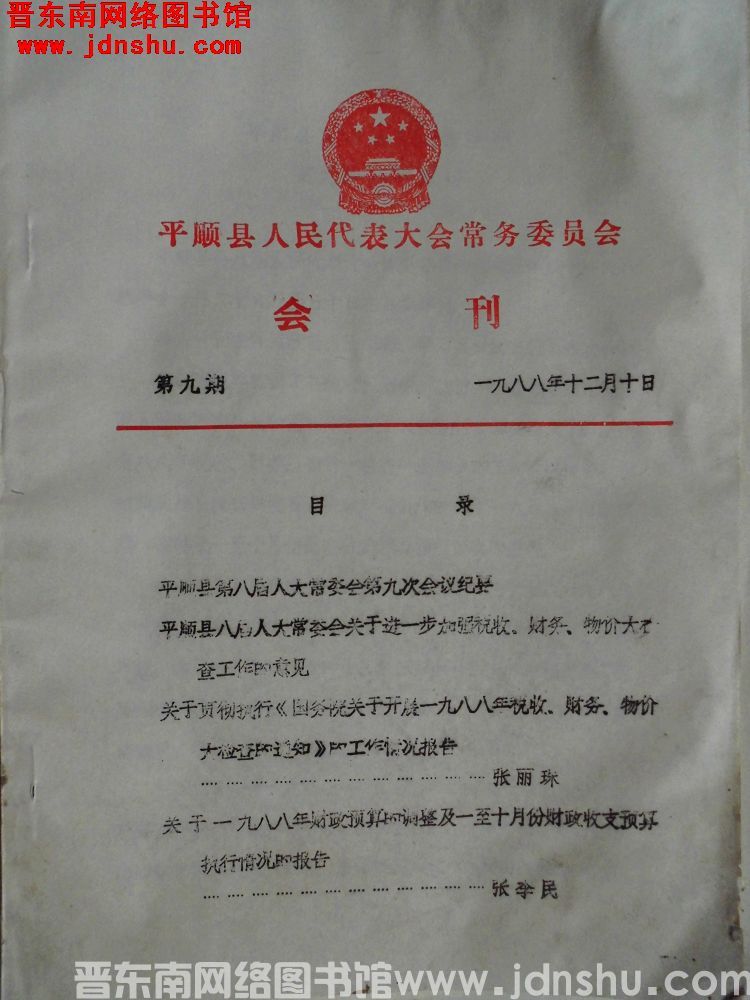 晋东南网络图书馆
www.jdnshu.com
平顺县人民代表大会常务委员会
会刊
第九期 一九八八年十二月十日
目录
平顺县第八届人大常委会第九次会议纪要
平顺县八届人大常委会关于进一步加强税收、财务、物价大检
查工作的意见
关于贯彻执行《国务院关于开展一九八八年税收、财务、物价
大检查的通知》的工作情况报告
……………………………张丽珠
关于一九八八年财政预算的调整及一至十月份财政收支预算
执行情况的报告
……………………………张李民
晋东南网络图书馆www.jdnshu.com